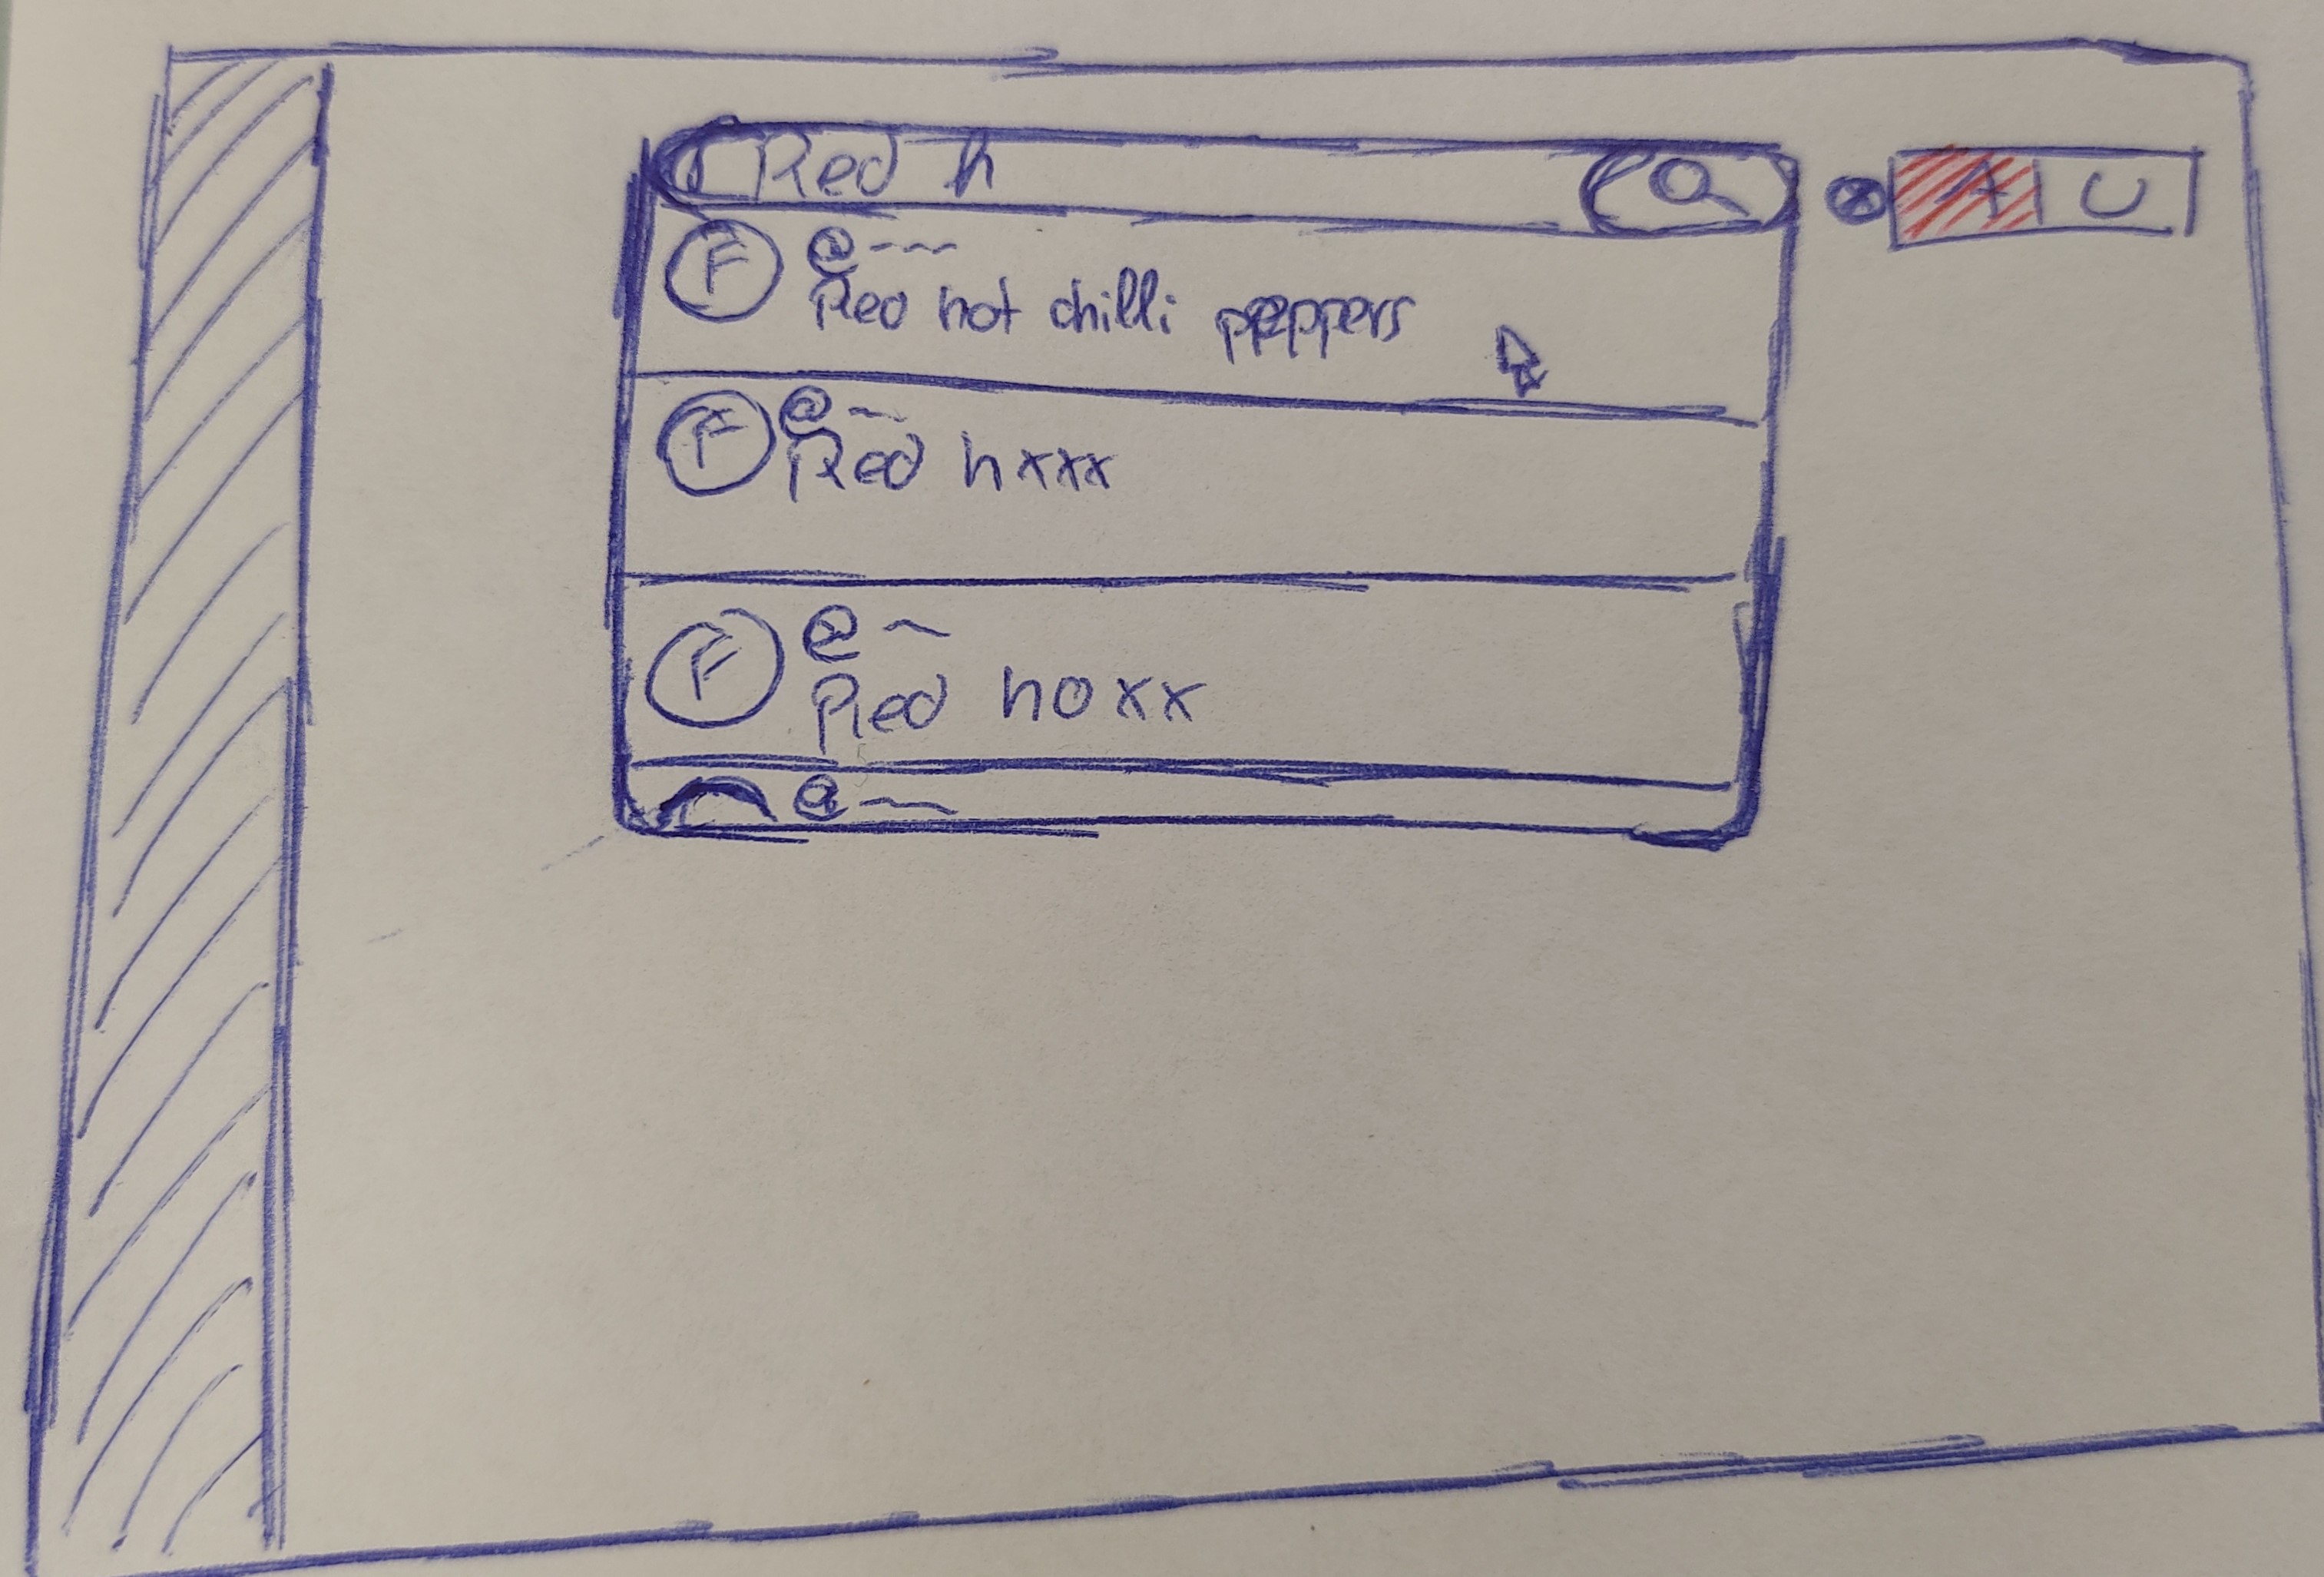 Red h
A U
F @
Red hot chilli peppers
F @
Red hxxx
F @
Red hoxx
@